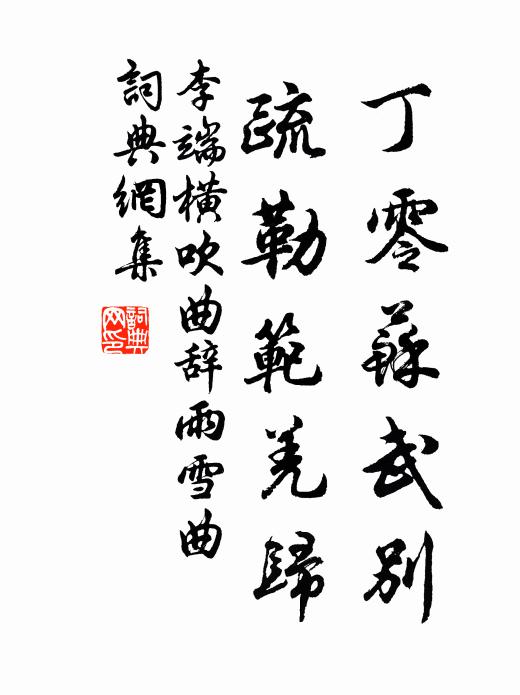 丁零蘇武別
疏勒範羌歸
李端橫吹曲辞雨雪曲
詞典網集
詞典网印